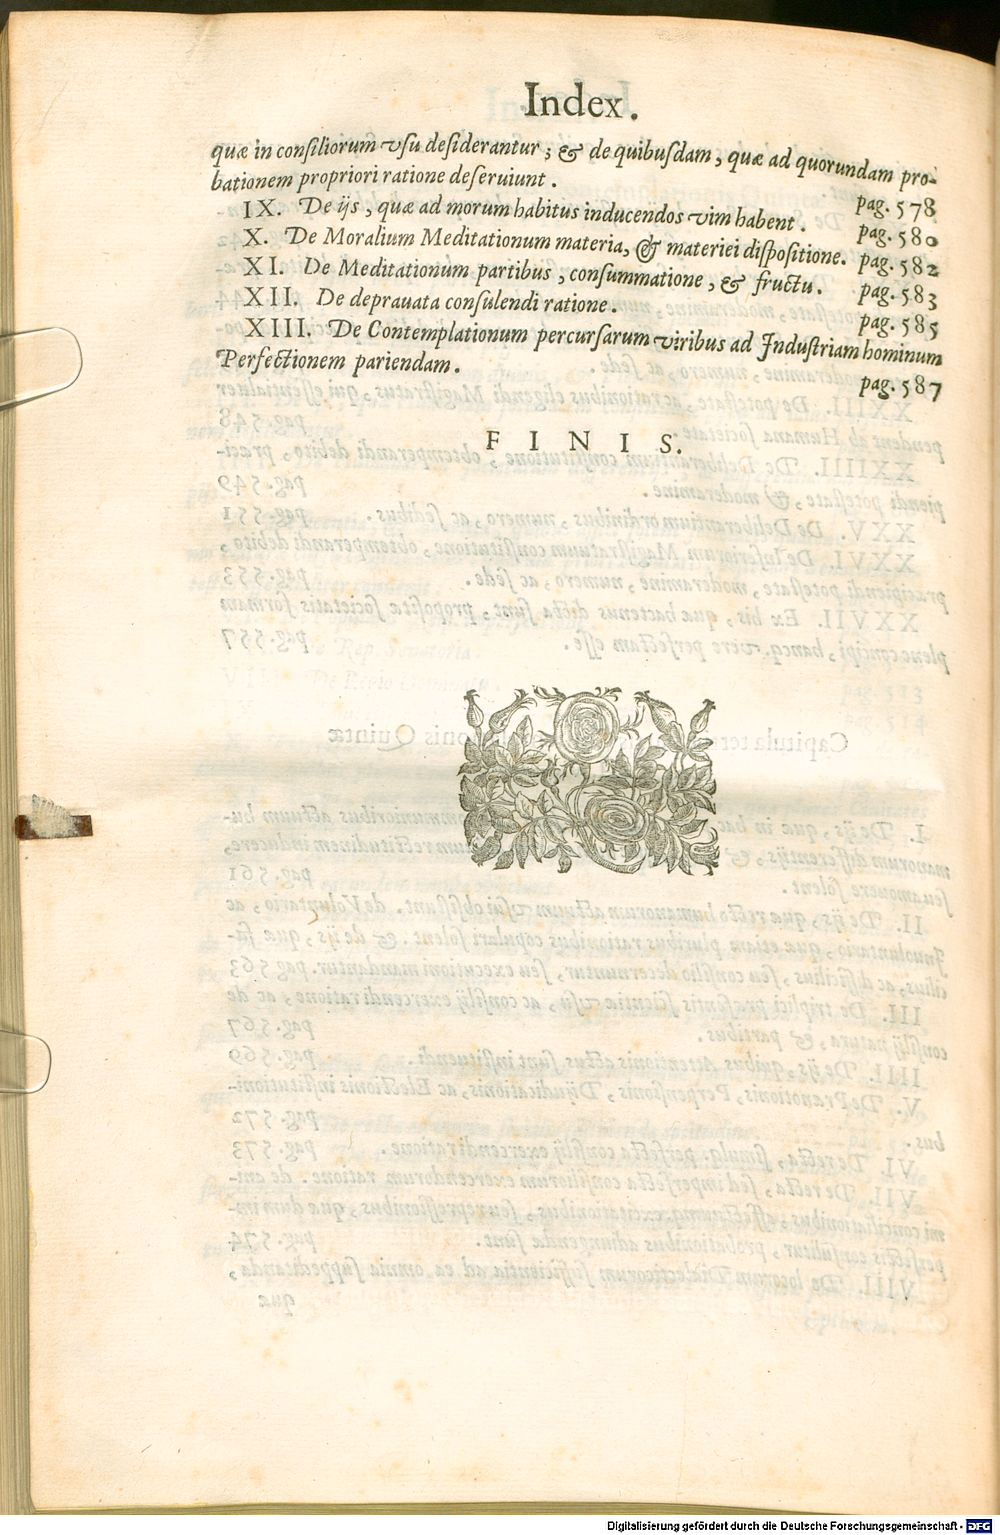 Index.
quæ in conſiliorum vſu deſiderantur; & de quibuſdam, quæ ad quorundam pro-
bationem propriori ratione deſeruiunt. pag. 578
IX. De ijs, quæ ad morum habitus inducendos vim habent. pag. 580
X. De Moralium Meditationum materia, & materiei diſpoſitione. pag. 582
XI. De Meditationum partibus, conſummatione, & fructu. pag. 583
XII. De deprauata conſulendi ratione. pag. 585
XIII. De Contemplationum percurſarum viribus ad Induſtriam hominum
Perfectionem pariendam. pag. 587
FINIS.
Digitalisierung gefördert durch die Deutsche Forschungsgemeinschaft - DFG